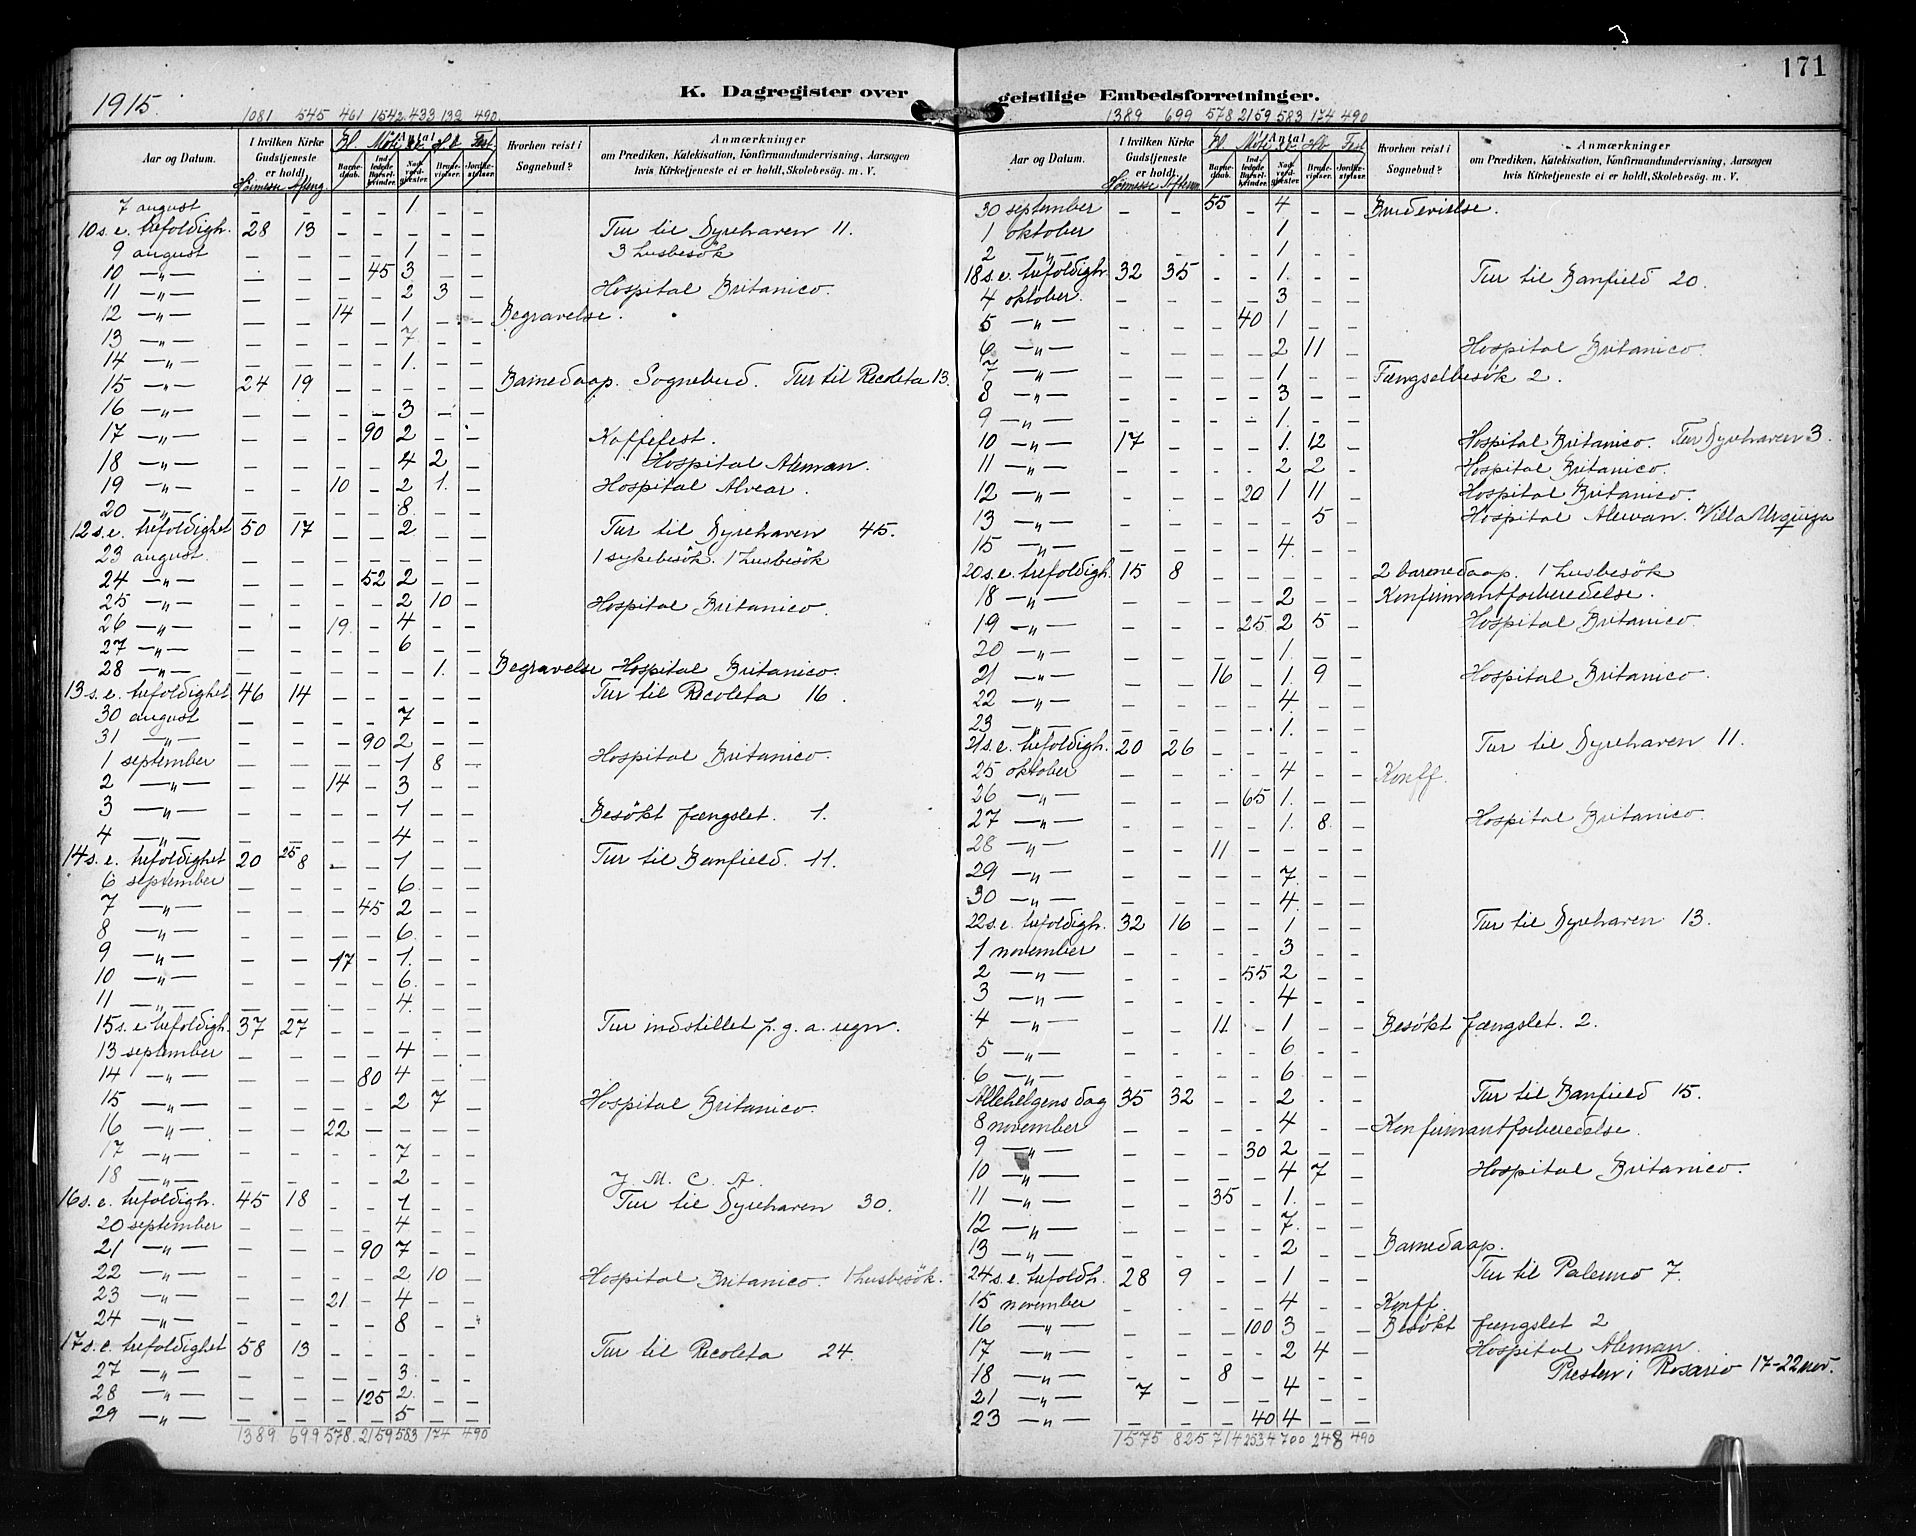 171
1915.
K. Dagregister over geistlige Embedsforretninger.
1081 545 461 1542 433 132 490
Aar og Datum. | I hvilken Kirke Gudstjeneste er holdt. | Antal | Barnedaab. | Indledede Barselkvinder. | Nadverdgjester. | Brudevielser. | Jordfæstelser. | Hvorhen reist i Sognebud? | Anmærkninger om Prædiken, Katekisation, Konfirmandundervisning, Aarsagen hvis Kirketjeneste ei er holdt, Skolebesøg. m. V.
Høimesse Afteng
7 august – – – – 1 – –
10 s. e. trefoldigh. 28 13 – – – – – Tur til Dyrehaven 11.
9 august – – – – 1 – – 3 husbesök
10 –„– – – – 45 3 – –
11 –„– – – – – 2 3 – Hospital Britanico.
12 –„– – – 14 – 1 – – Begravelse.
13 –„– – – – – 7 – –
14 –„– – – – – 1. – –
15 –„– 24 19 – – – – – Barnedaap. Sognebud. Tur til Recoleta 13.
16 –„– – – – – 3 – –
17 –„– – – – 90 2 – – Kaffefest.
18 –„– – – – – 4 2 – Hospital Aleman.
19 –„– – – 10 – 2 1. – Hospital Alvear.
20 –„– – – – – 8 – –
12 s. e. trefoldighet 50 17 – – 2 – – Tur til Dyrehaven 45.
23 august – – – – – – – 1 sykebesök. 1 husbesök
24 –„– – – – 52 2 – –
25 –„– – – – – 2 10 – Hospital Britanico.
26 –„– – – 19. – 4 – –
27 –„– – – – – 6 – –
28 –„– – – – – – 1. – Begravelse Hospital Britanico.
13 s. e. trefoldighet 46 14 – – – – – Tur til Recoleta 16.
30 august – – – – 7 – –
31 –„– – – – 90 2 – –
1 september – – – – 1 8 – Hospital Britanico.
2 –„– – – 14 – 3 – –
3 –„– – – – – 1 – – Besökt fængslet. 1.
4 –„– – – – – 4 – –
14 s. e. trefoldighet 20 25 8 – – 1 – – Tur til Banfield. 11.
6 september – – – – 6 – –
7 –„– – – – 45 2 – –
8 –„– – – – – 6. – –
9 –„– – – 17 – 1. – –
10 –„– – – – – 6. – –
11 –„– – – – – 4. – –
15 s. e. trefoldigh. 37 27 – – – – – Tur indstillet p. g. a. regn.
13 september – – – – 4 – –
14 –„– – – – 80 4 – –
15 –„– – – – – 2 7 – Hospital Britanico.
16 –„– – – 22 – – – –
17 –„– – – – – 7 – –
18 –„– – – – – 2 – – Y. M. C. A.
16 s. e. trefoldigh. 45 18 – – 1 – – Tur til Dyrehaven 30.
20 september – – – – 4 – –
21 –„– – – – 90 7 – –
22 –„– – – – – 2 10 – Hospital Britanico. 1 husbesök.
23 –„– – – 21 – 4 – –
24 –„– – – – – 8 – –
17 s. e. trefoldighet 58 13 – – – – – Tur til Recoleta 24.
27 –„– – – – – 3. – –
28 –„– – – – 125 2 – –
29 –„– – – – – 5 – –
1389 699 578. 2159 583 174 490
1389 699 578 2159 583 174 490
Aar og Datum. | I hvilken Kirke Gudstjeneste er holdt. | Antal | Barnedaab. | Indledede Barselkvinder. | Nadverdgjester. | Brudevielser. | Jordfæstelser. | Hvorhen reist i Sognebud? | Anmærkninger om Prædiken, Katekisation, Konfirmandundervisning, Aarsagen hvis Kirketjeneste ei er holdt, Skolebesøg. m. V.
30 september – – 55 – 4 – – Brudevielse.
1 oktober – – – – 1 – –
2 –„– – – – – 1 – –
18 s. e. trefoldigh. 32 35 – – 1. – – Tur til Banfield 20.
4 oktober. – – – – 3 – –
5 –„– – – – 40 1 – –
6 –„– – – – – 2 11 – Hospital Britanico.
7 –„– – – – – 1 – – Fængselbesök 2.
8 –„– – – – – 3 – –
9 –„– – – – – 1. – –
10 –„– 17 – – – 1. 12 – Hospital Britanico. Tur Dyrehaven 3.
11 –„– – – – – 2 2 – Hospital Britanico.
12 –„– – – – 20 1 11 – Hospital Britanico.
13 –„– – – – – – 5 – Hospital Aleman. Villa Urquiza
15 –„– – – – – 4. – –
20 s. e. trefoldigh. 15 8 – – – – – 2 barnedaap. 1 husbesök
18 –„– – – – – 2 – – Konfirmantforberedelse.
19 –„– – – – 25 2 5 – Hospital Britanico.
20 –„– – – – – 1. – –
21 –„– – – 16 – 1. 9 – Hospital Britanico.
22 –„– – – – – 4. – –
23 –„– – – – – 1. – –
21 s. e. trefoldigh. 20 26 – – – – – Tur til Dyrehaven 11.
25 oktober – – – – 4 – – Konff.
26 –„– – – – 65 1. – –
27 –„– – – – – 1. 8. – Hospital Britanico.
28 –„– – – 11 – – – –
29 –„– – – – – 7. – –
30 –„– – – – – 4. – –
22 s. e. trefoldigh. 32 16 – – 1 – – Tur til Dyrehaven 13.
1 november – – – – 3 – –
2 –„– – – – 55 2 – –
3 –„– – – – – 4 – –
4 –„– – – 11 – 1 – – Besökt fængslet. 2.
5 –„– – – – – 6 – –
6 –„– – – – – 6 – –
Allehelgens dag 35 32 – – 2 – – Tur til Banfield 15.
8 november – – – – 4 – – Konfirmantforberedelse.
9 –„– – – – 30 2 – –
10 –„– – – – – 4 7 – Hospital Britanico.
11 –„– – – 35 – 1. – –
12 –„– – – – – 7. – –
13 –„– – – – – 2 – – Barnedaap.
24 s. e. trefoldh. 28 9 – – 1 – – Tur til Palermo 7.
15 november – – – – 4 – – Konff.
16 –„– – – – 100 3 – – Besökt fængslet 2
17 –„– – – – – 2 4 – Hospital Aleman.
18 –„– – – 8 – – – – Presten i Rosario 17-22 nov.
21 –„– 7 – – – 4 – –
23 –„– – – – 40 4 – –
1575 825 714 2534 700 248 490